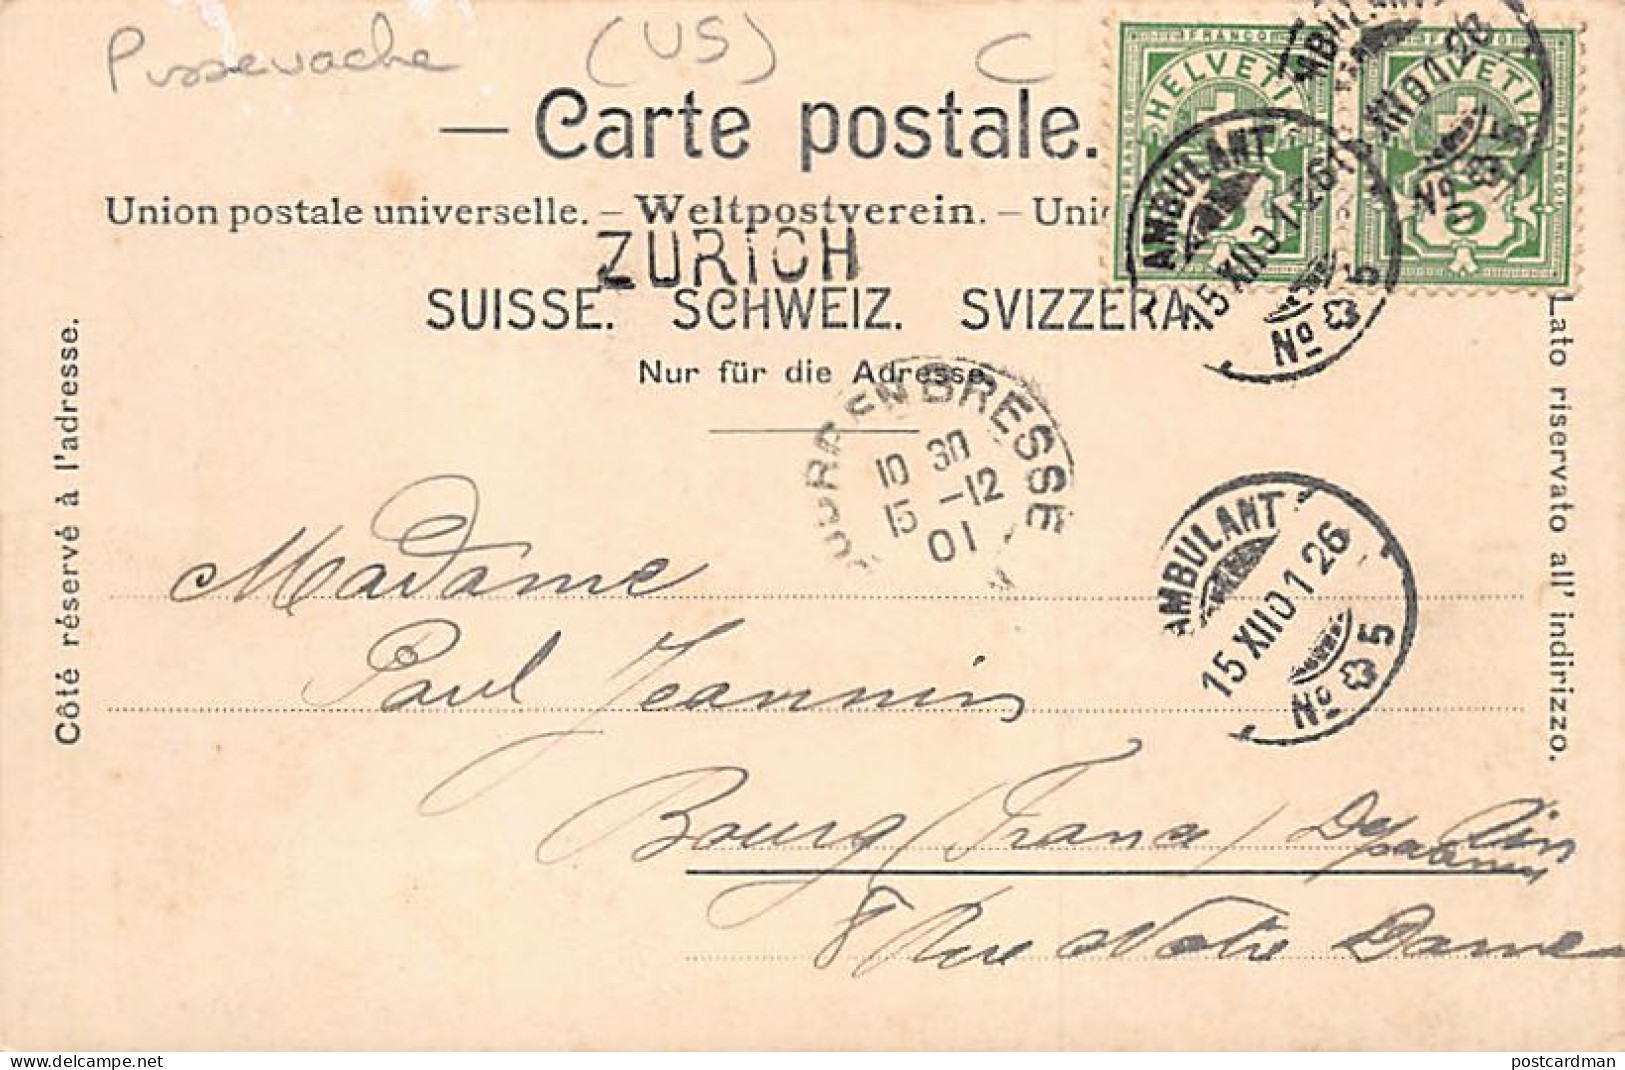 Pissevache (US) C
— Carte postale.
Union postale universelle. – Weltpostverein. – Uni
ZÜRICH
SUISSE. SCHWEIZ. SVIZZERA.
Nur für die Adresse.
Côté réservé à l'adresse.
Lato riservato all' indirizzo.
FRANCO
HELVETIA
5
FRANCO
HELVETIA
5
AMBULANT
15 XII 01 26
No 5
AMBULANT
15 XII 01 26
No 5
BOURG-EN-BRESSE
10 30
15 -12
01
AMBULANT
15 XII 01 26
No 5
Madame
Paul Jeannin
Bourg (France) Dép Ain
8 Rue Notre Dame
delcampe.net
postcardman